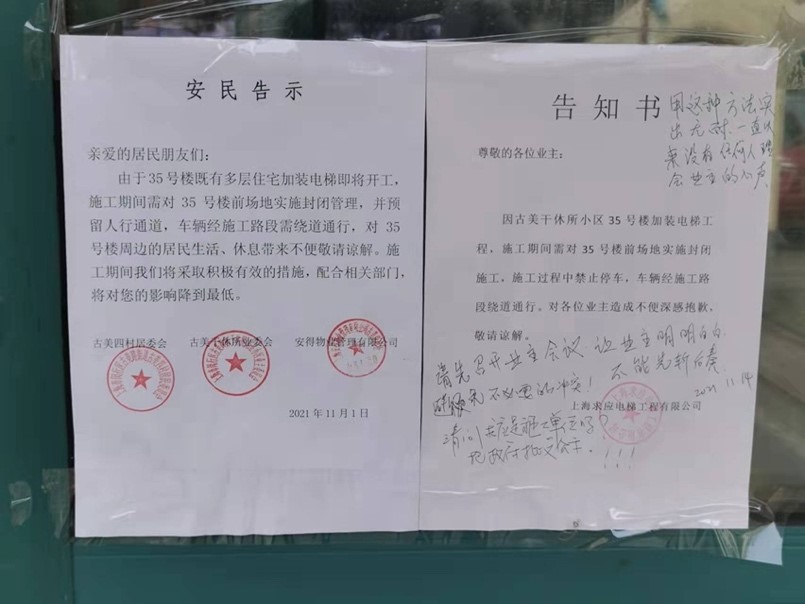 安民告示
亲爱的居民朋友们：
由于35号楼既有多层住宅加装电梯即将开工，
施工期间需对 35 号楼前场地实施封闭管理，并预
留人行通道，车辆经施工路段需绕道通行，对 35
号楼周边的居民生活、休息带来不便敬请谅解。施
工期间我们将采取积极有效的措施，配合相关部门，
将对您的影响降到最低。
古美四村居委会 古美干休所业委会 安得物业管理有限公司
2021 年 11 月 1 日
告知书
用这种方法突
出无耐，一直以
来没有任何人理
会业主的心声
尊敬的各位业主：
因古美干休所小区 35 号楼加装电梯工
程，施工期间需对 35 号楼前场地实施封闭
施工，施工过程中禁止停车，车辆经施工路
段绕道通行。对各位业主造成不便深感抱歉，
敬请谅解。
请先召开业主会议 让业主明明白白
避免不必要的冲突！ 不能先斩后奏
2021.11.14
上海求应电梯工程有限公司
请问 施工单位吗？
把政府批文公示！！！